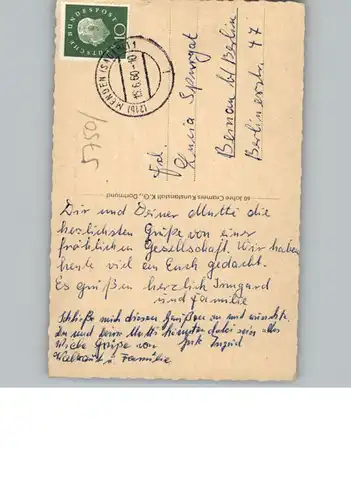 DEUTSCHE BUNDESPOST
10
MENDEN (SAUERL) 1
(21b)
15.6.60-10
5750/
Frl.
Lucia Spurgat
Bernau b/Berlin
Berlinerstr. 47
60 Jahre Cramers Kunstanstalt K.G., Dortmund
Dir und Deiner Mutti die
herzlichsten Grüße von einer
fröhlichen Gesellschaft. Wir haben
heute viel an Euch gedacht.
Es grüßen herzlich Irmgard
und Familie
Schließe mich diesen Grüßen an und wünschte,
Du und Deine Mutti könnten dabei sein.
Liebe Grüße von Ingrid
Waltraud u. Familie